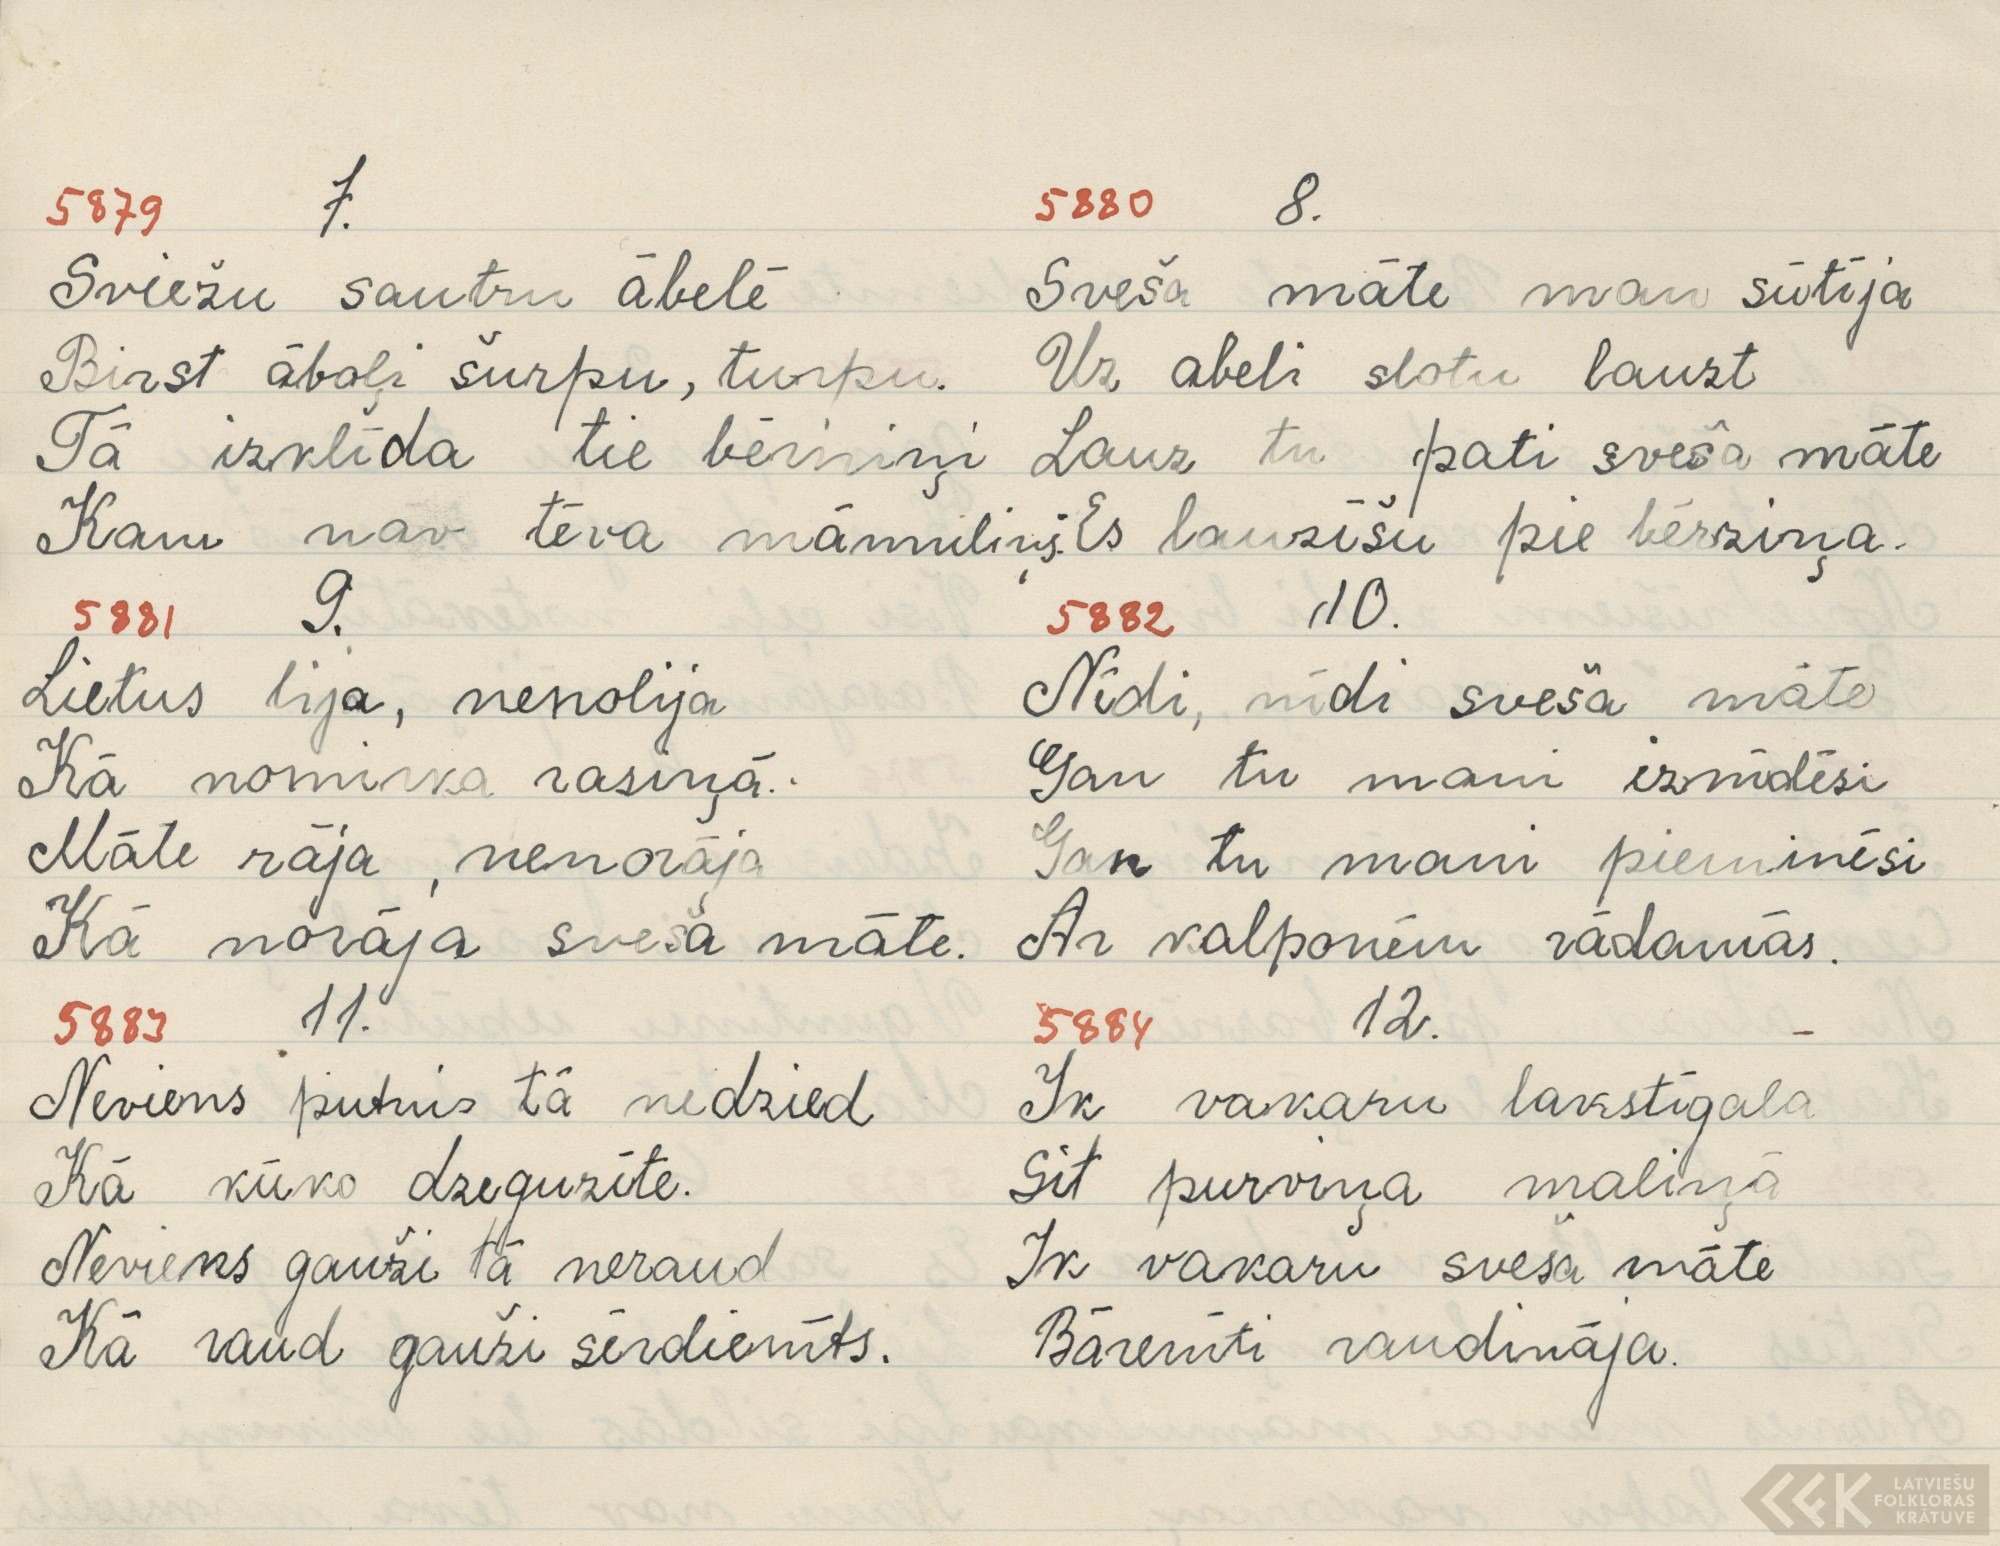 5879 7.
Sviežu sautru ābelē
Birst āboļi šurpu, turpu.
Tā izklīda tie bērniņi
Kam nav tēva māmuliņ.
5880 8.
Sveša māte man sūtīja
Uz abeli slotu lauzt
Lauz tu pati sveša māte
Es lauzīšu pie bērziņa.
5881 9.
Lietus lija, nenolija
Kā nomirka rasiņā.
Māte rāja, nenorāja
Kā norāja sveša māte.
5882 10.
Nīdi, nīdi sveša māte
Gan tu mani iznīdēsi
Gan tu mani pieminēsi
Ar kalponēm rādamās.
5883 11.
Neviens putnis tā nedzied
Kā kūko dzeguzīte.
Neviens gauži tā neraud
Kā raud gauži sērdienīts.
5884 12.
Ik vakaru lakstīgala
Sit purviņa maliņā
Ik vakaru sveša māte
Bārenīti raudināja.
LATVIEŠU
FOLKLORAS
KRĀTUVE